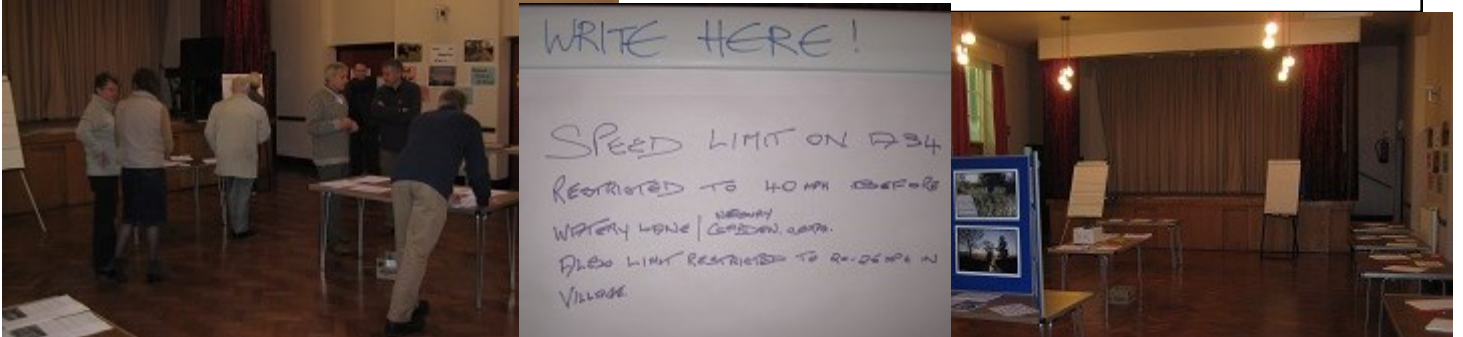 WRITE HERE!
SPEED LIMIT ON A34
RESTRICTED TO 40 MPH BEFORE
WATERY LANE /
ALSO LIMIT RESTRICTED TO IN
VILLAGE